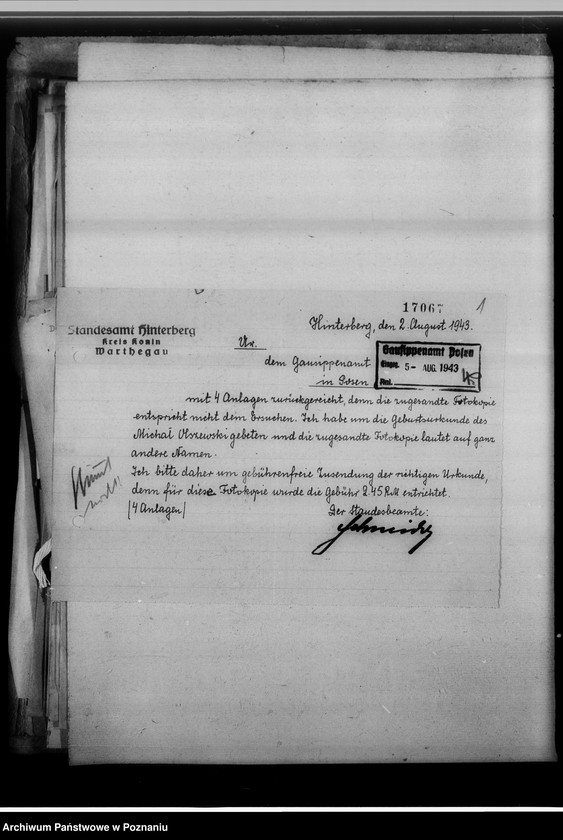 17067
1
Standesamt Hinterberg
Kreis Konin
Warthegau
Hinterberg, den 2. August 1943.
Ur.
dem Gausippenamt
in Posen
Gausippenamt Posen
Eingg. 5- AUG. 1943
mit 4 Anlagen zurückgereicht, denn die zugesandte Fotokopie
entspricht nicht dem Ersuchen. Ich habe um die Geburtsurkunde des
Michał Olszewski gebeten und die zugesandte Fotokopie lautet auf ganz
andere Namen.
Ich bitte daher um gebührenfreie Zusendung der richtigen Urkunde,
denn für diese Fotokopie wurde die Gebühr 2.45 RM entrichtet.
/4 Anlagen/
Der Standesbeamte:
Stimmt
Archiwum Państwowe w Poznaniu